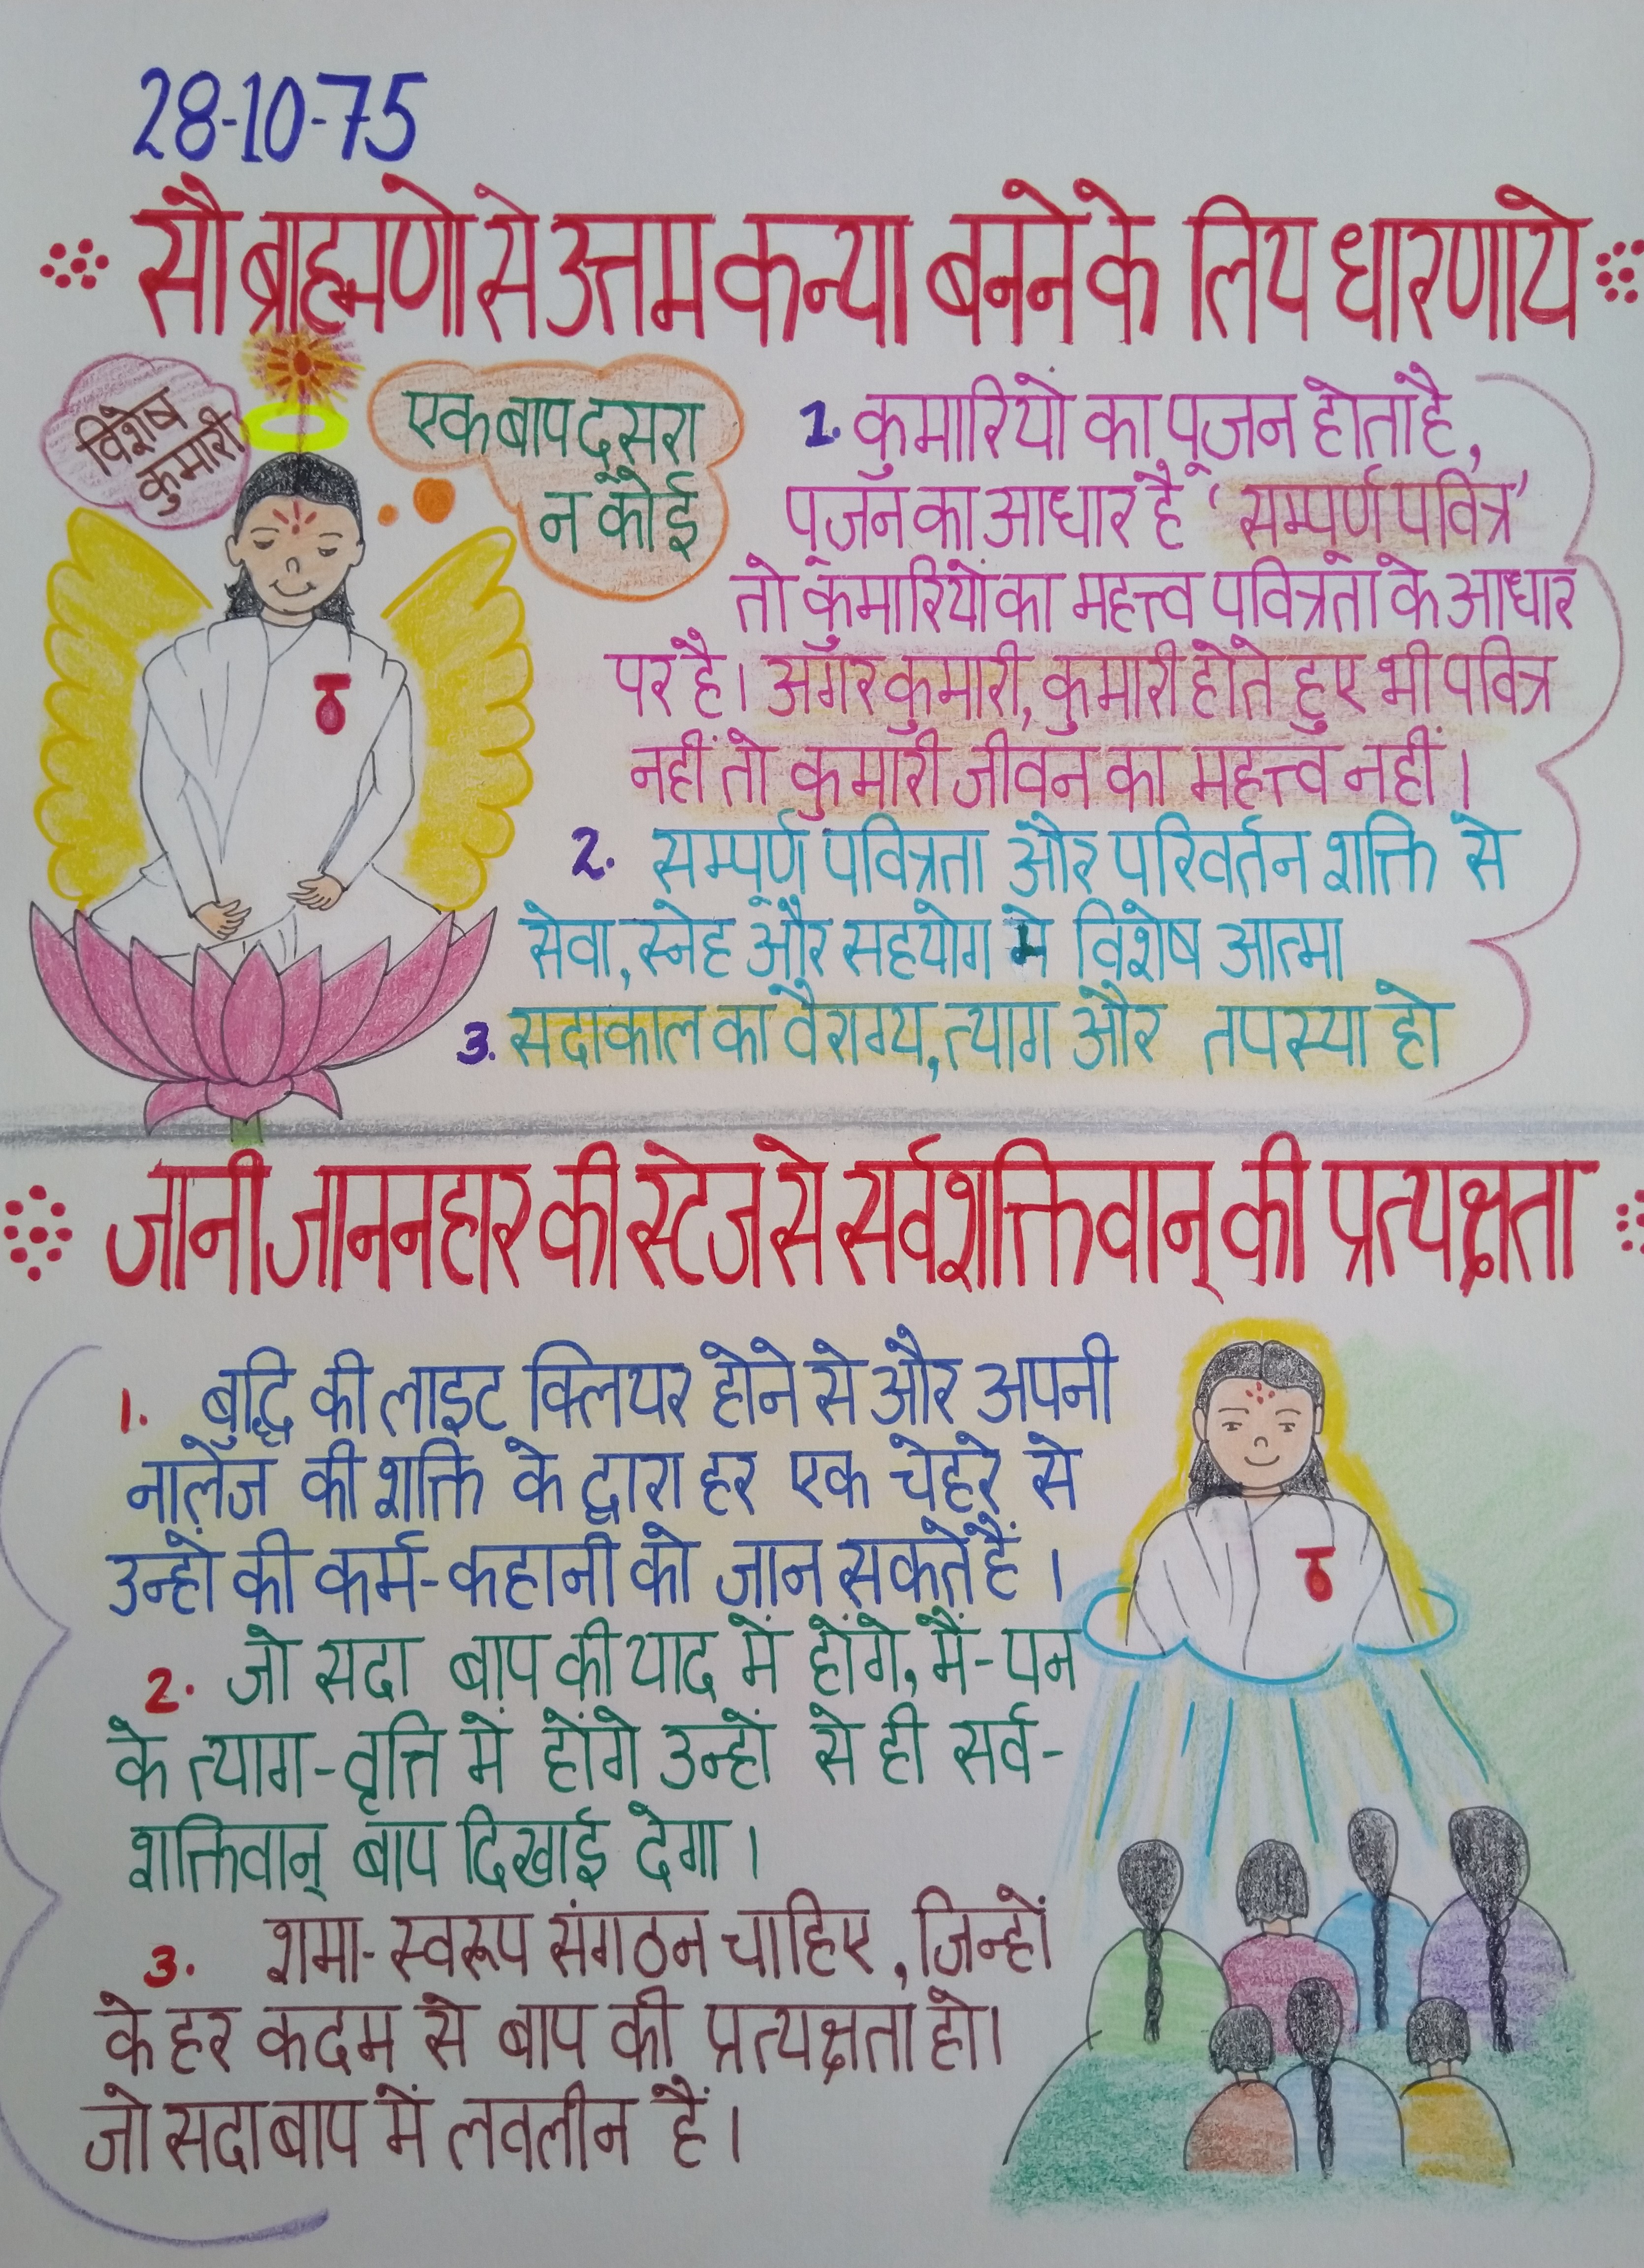 28-10-75
सौ ब्राह्मणो से उत्तम कन्या बनने के लिय धारणाये
विशेष
कुमारी
एक बाप दूसरा
न कोई
1. कुमारियों का पूजन होता है,
पूजन का आधार है 'सम्पूर्ण पवित्र'
तो कुमारियों का महत्त्व पवित्रता के आधार
पर है। अगर कुमारी, कुमारी होते हुए भी पवित्र
नहीं तो कुमारी जीवन का महत्त्व नहीं।
2. सम्पूर्ण पवित्रता और परिवर्तन शक्ति से
सेवा, स्नेह और सहयोग मे विशेष आत्मा
3. सदाकाल का वैराग्य, त्याग और तपस्या हो
जानी जाननहार की स्टेज से सर्वशक्तिवान् की प्रत्यक्षता
1. बुद्धि की लाइट क्लियर होने से और अपनी
नालेज की शक्ति के द्वारा हर एक चेहरे से
उन्हों की कर्म-कहानी को जान सकते हैं।
2. जो सदा बाप की याद में होंगे, मैं-पन
के त्याग-वृत्ति में होंगे उन्हों से ही सर्व-
शक्तिवान् बाप दिखाई देगा।
3. शमा-स्वरूप संगठन चाहिए, जिन्हों
के हर कदम से बाप की प्रत्यक्षता हो।
जो सदा बाप में लवलीन हैं।